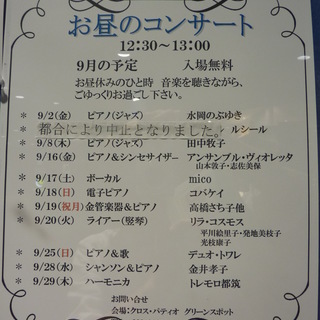 お昼のコンサート
12:30～13:00
9月の予定 入場無料
お昼休みのひと時 音楽を聴きながら、
ごゆっくりお過ごし下さい。
* 9/2(金) ピアノ(ジャズ) 水岡のぶゆき
* 都合により中止となりました。 ルシール
* 9/8(木) ピアノ(ジャズ) 田中牧子
* 9/16(金) ピアノ&シンセサイザー アンサンブル・ヴィオレッタ
山本敦子・志佐美保
* 9/17(土) ボーカル mico
* 9/18(日) 電子ピアノ コバケイ
* 9/19(祝月) 金管楽器&ピアノ 高橋さち子他
* 9/20(火) ライアー(竪琴) リラ・コスモス
平川絵里子・発地美枝子
光枝康子
* 9/25(日) ピアノ&歌 デュオ・トワレ
* 9/28(水) シャンソン&ピアノ 金井孝子
* 9/29(木) ハーモニカ トレモロ都筑
お問い合せ
会場:クロス・パティオ グリーンスポット